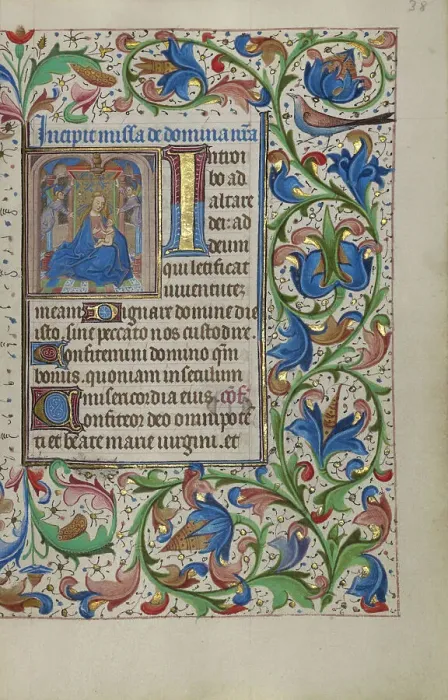 38
Incipit missa de domina nr̄a
Introi
bo ad
altare
dei: ad
deum
qui letificat
iuuentutez
meam Dignare domine die
isto. sine peccato nos custodire.
Confitemini domino qm̄
bonus. quoniam in seculum
misericordia eius. cōf.
Confiteor deo omnipotē
ti et beate marie uirgini. et